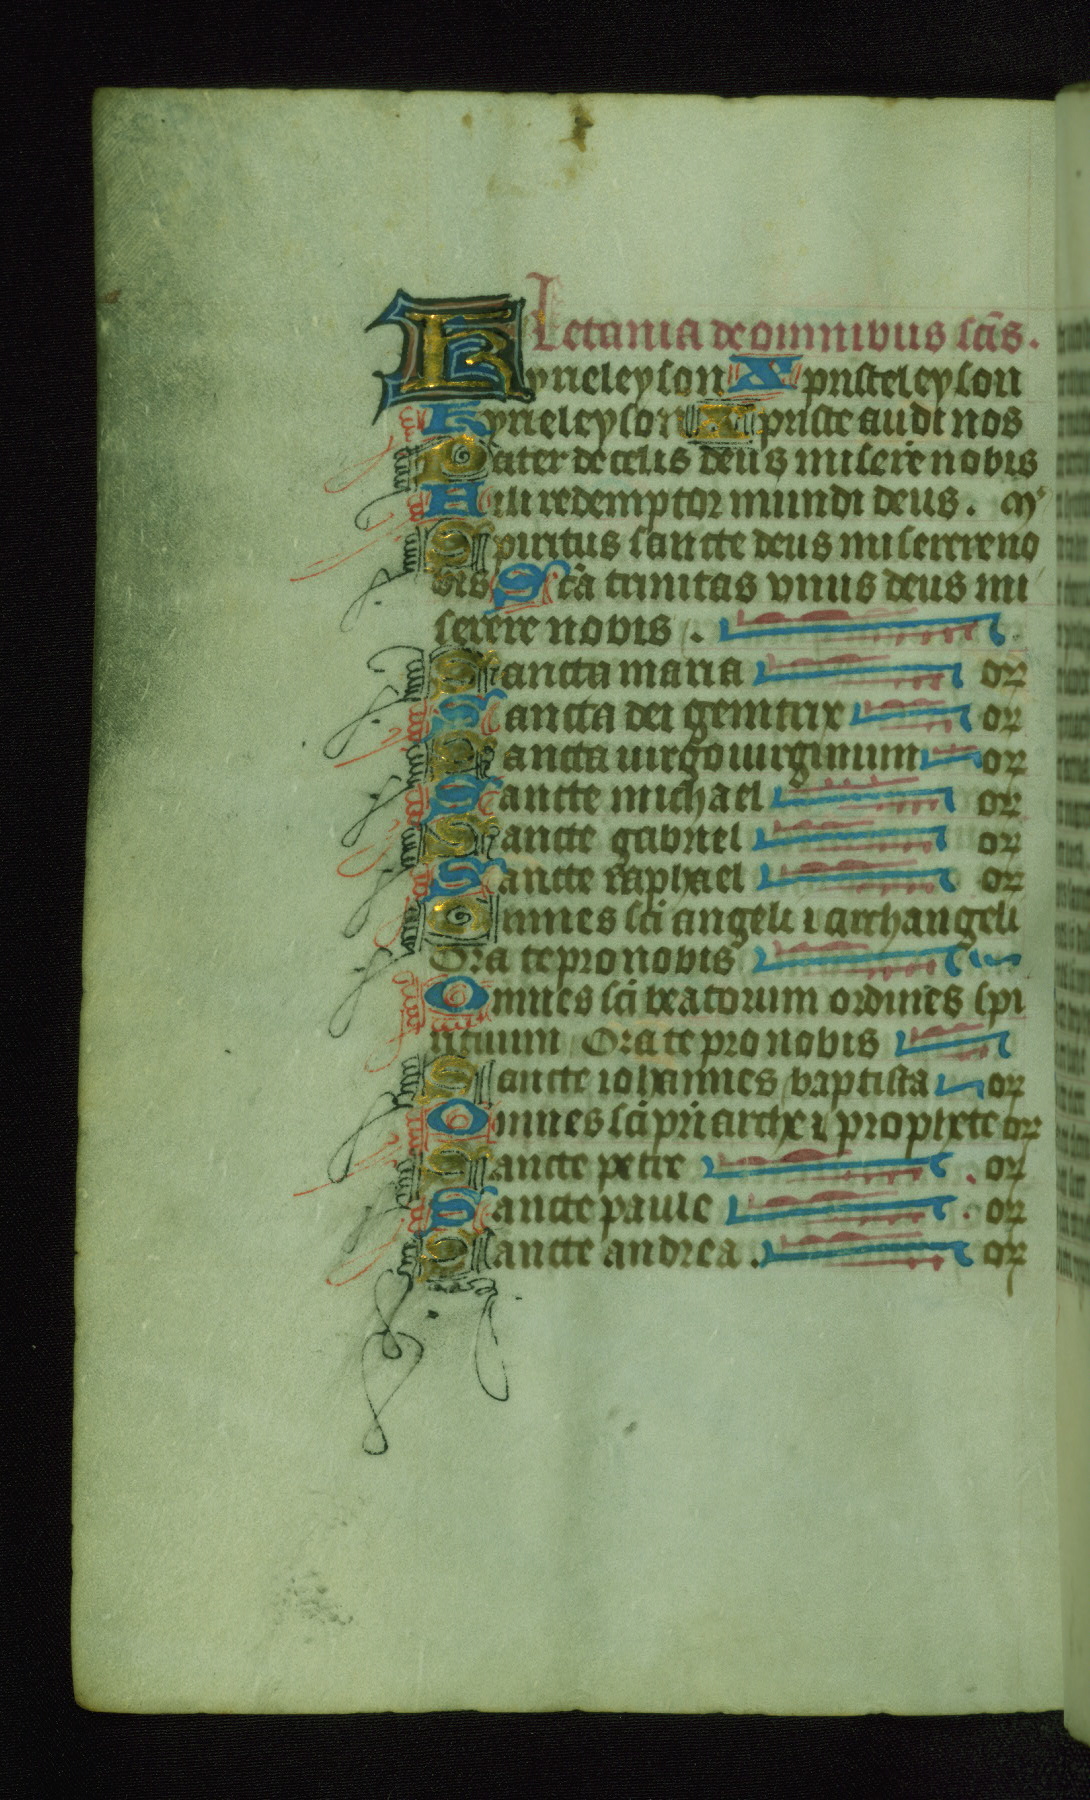 Letania de omnibus scis.
Kyrieleyson Xpristeleyson
Kyrieleyson Xpriste audi nos
Pater de celis deus miserere nobis
Fili redemptor mundi deus. mi
Spiritus sancte deus miserere no
bis Sca trinitas vnus deus mi
serere nobis.
Sancta maria or
Sancta dei genitrix or
Sancta uirgo uirginum or
Sancte michael or
Sancte gabriel or
Sancte raphael or
Omnes sci angeli ⁊ archangeli
Orate pro nobis
Omnes sci beatorum ordines spi
rituum Orate pro nobis
Sancte iohannes baptista or
Omnes sci priarche ⁊ prophete or
Sancte petre or
Sancte paule or
Sancte andrea. or